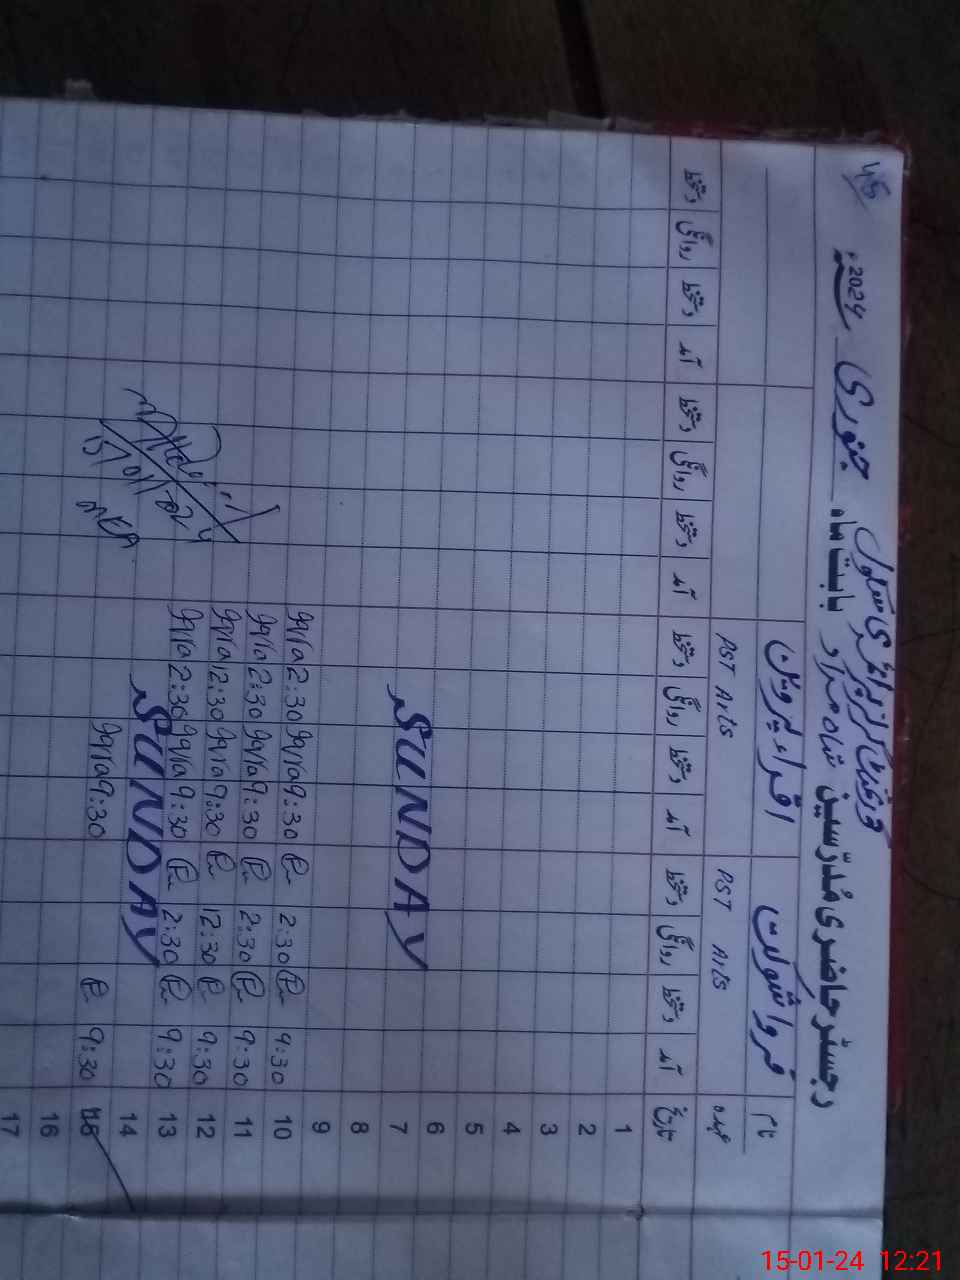 45
رجسٹر حاضری مُدرّسین شاہ مراد بابت ماہ جنوری 2024ء
گورنمنٹ گرلز پرائمری سکول
نام فرواشوکت اقراء پروین
عہدہ PST Arts PST Arts
تاریخ آمد دستخط روانگی دستخط آمد دستخط روانگی دستخط آمد دستخط روانگی دستخط آمد دستخط روانگی دستخط
1
2
3
4
5
6
7 SUNDAY
8
9
10 9:30 2:30 9:30 Iqra 2:30 Iqra
11 9:30 2:30 9:30 Iqra 2:30 Iqra
12 9:30 12:30 9:30 Iqra 12:30 Iqra
13 9:30 2:30 9:30 Iqra 2:30 Iqra
14 SUNDAY
15 9:30 9:30 Iqra
15/01/024
MEA
16
17
15-01-24 12:21